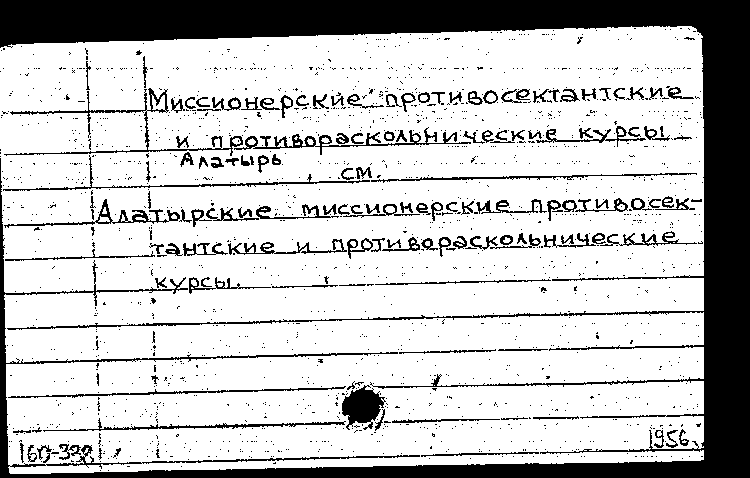 Миссионерские противосектантские
и противораскольнические курсы
Алатырь, см.
Алатырские миссионерские противосек-
тантские и противораскольнические
курсы.
1956